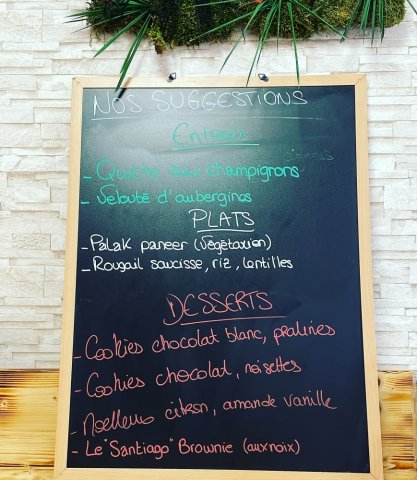 NOS SUGGESTIONS
Entrées
- Quiche aux champignons
- Velouté d'aubergines
PLATS
- Palak paneer (végétarien)
- Rougail saucisse, riz, lentilles
DESSERTS
- Cookies chocolat blanc, pralines
- Cookies chocolat, noisettes
- Moelleux citron, amande vanille
- Le "Santiago" Brownie (aux noix)